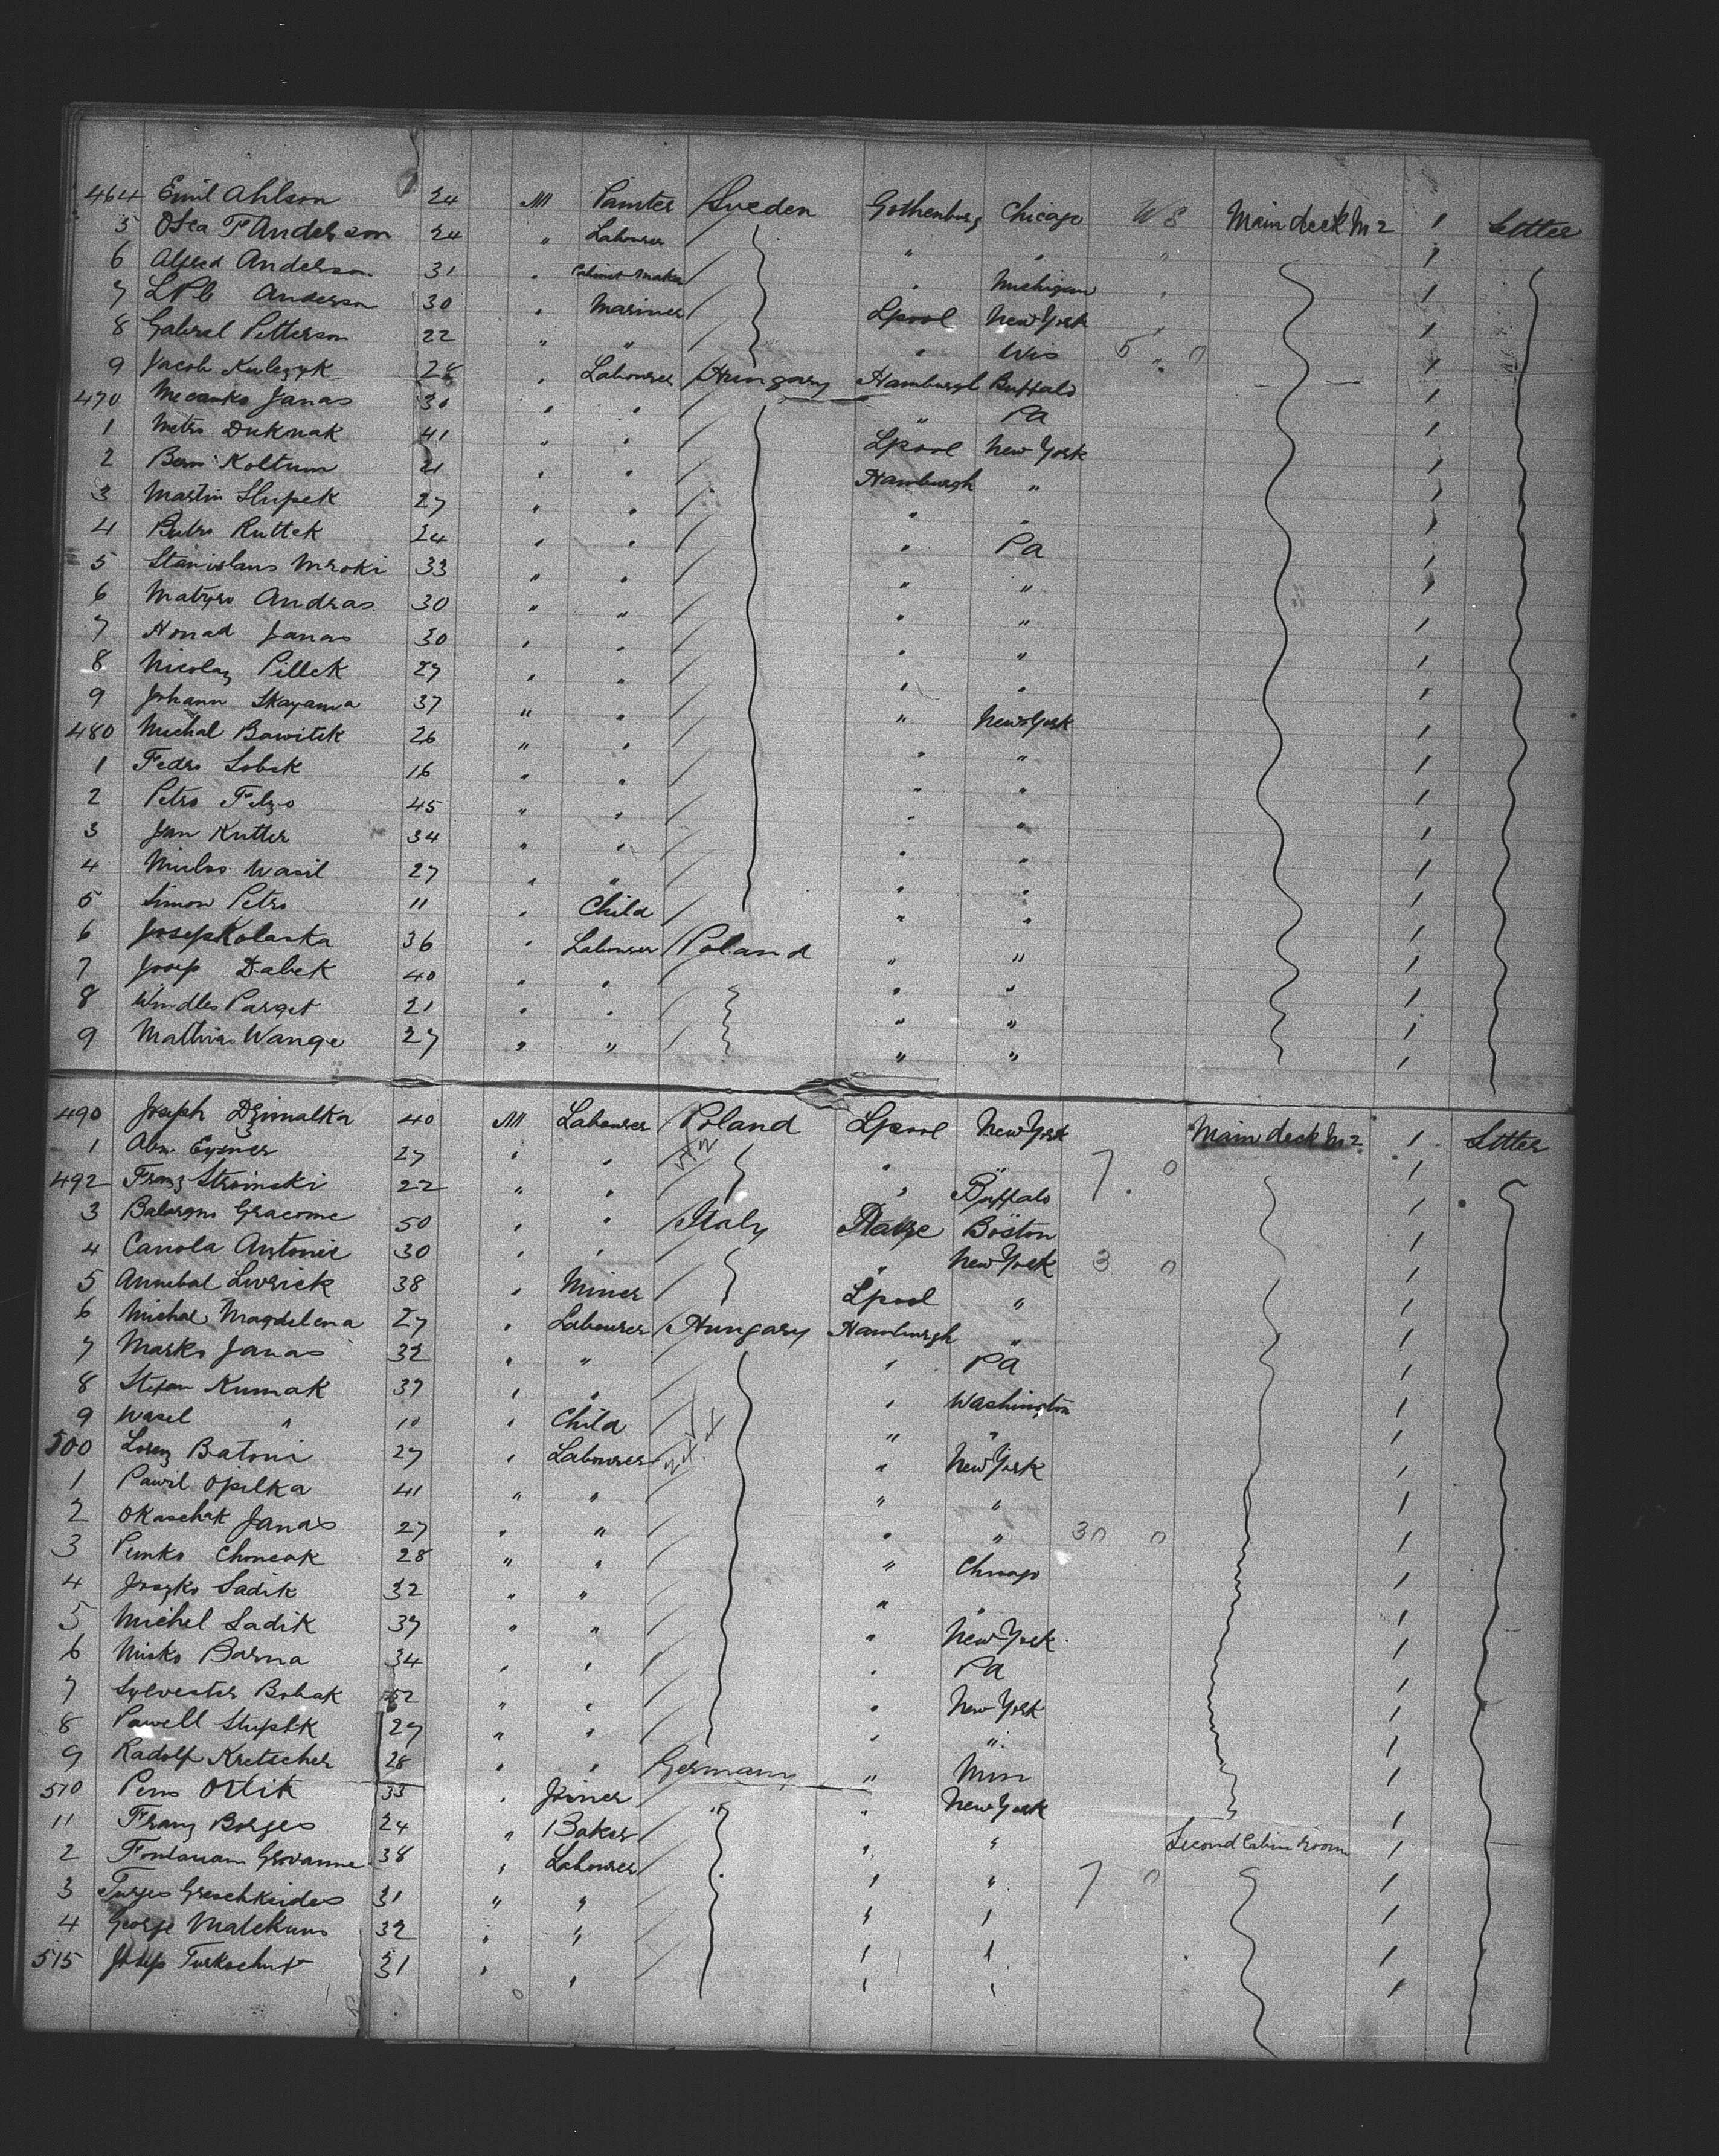 464 Emil Ahlson 24 M Painter Sweden Gothenburg Chicago W S Main deck M 2 1 Settler
5 Anderson 24 " Labourer " " " 1
6 Alfred Anderson 31 " Cabinet Maker " Michigan " 1
7 Anderson 30 " Mariner Lpool New York 1
8 Gabriel Petterson 22 " " " Wis 5 " 0 1
9 Jacob Kulczyk 28 " Labourer Hungary Hamburgh Buffalo 1
470 Janas 30 " " " Pa 1
1 Metro Duknak 41 " " Lpool New York 1
2 Koltum 21 " " Hamburgh " 1
3 Martin Slupek 27 " " " " 1
4 Ruttek 24 " " " Pa 1
5 Stanislaus Mroki 33 " " " " 1
6 Andras 30 " " " " 1
7 Janas 30 " " " " 1
8 Nicolaz Pillek 27 " " " " 1
9 Johann Skayama 37 " " " New York 1
480 Michal Bawitik 26 " " " " 1
1 Fedro Sobek 16 " " " " 1
2 Petro 45 " " " " 1
3 Jan Kutter 34 " " " " 1
4 Wasil 27 " " " " 1
5 Simon Petro 11 " Child " " 1
6 Josep Kolaska 36 " Labourer Poland " " 1
7 Josep Dabek 40 " " " " 1
8 Parget 21 " " " " 1
9 Mathias Wange 27 " " " " 1
490 Joseph Dzimalka 40 M Labourer Poland Lpool New York Main deck M 2 1 Settler
1 Abm. Eysner 27 " " " " 7 0 1
492 Franz Stroinski 22 " " " Buffalo 1
3 Gracome 50 " " Italy Boston 1
4 Canola Antonie 30 " " " New York 3 0 1
5 Annibal 38 " Miner Lpool " 1
6 Michal Magdelena 27 " Labourer Hungary Hamburgh " 1
7 Marko Janas 32 " " " Pa 1
8 Stefan Kumak 37 " " " Washington 1
9 Wasel " 10 " Child " " 1
500 Lorenz Batoni 27 " Labourer " New York 1
1 Pawil Opilka 41 " " " " 1
2 Okaschak Janas 27 " " " " 30 0 1
3 Choncak 28 " " " Chicago 1
4 Joszko Sadik 32 " " " " 1
5 Michel Sadik 37 " " " New York 1
6 Misko Barna 34 " " " Pa 1
7 Sylvester Bobak 52 " " " New York 1
8 Pawell 27 " " " " 1
9 Radolf Kretscher 28 " " Germany " Min 1
510 Ortik 33 " Joiner " " New York 1
11 Franz Borges 24 " Baker " " Second Cabin Room 1
2 Giovanne 38 " Labourer " " 7 0 1
3 31 " " " " 1
4 George Malekuns 32 " " " " 1
515 Josep 31 " " " " 1